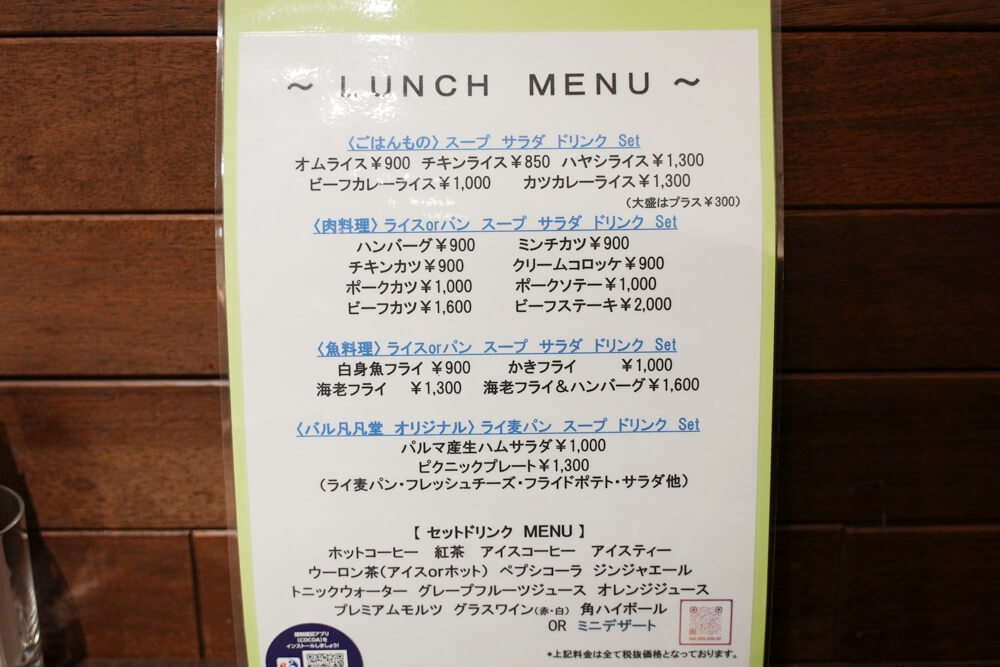 ～ LUNCH MENU ～
〈ごはんもの〉 スープ サラダ ドリンク Set
オムライス￥900 チキンライス￥850 ハヤシライス￥1,300
ビーフカレーライス￥1,000 カツカレーライス￥1,300
（大盛はプラス￥300）
〈肉料理〉 ライスorパン スープ サラダ ドリンク Set
ハンバーグ￥900 ミンチカツ￥900
チキンカツ￥900 クリームコロッケ￥900
ポークカツ￥1,000 ポークソテー￥1,000
ビーフカツ￥1,600 ビーフステーキ￥2,000
〈魚料理〉 ライスorパン スープ サラダ ドリンク Set
白身魚フライ ￥900 かきフライ ￥1,000
海老フライ ￥1,300 海老フライ＆ハンバーグ￥1,600
〈バル凡凡堂 オリジナル〉 ライ麦パン スープ ドリンク Set
パルマ産生ハムサラダ￥1,000
ピクニックプレート￥1,300
（ライ麦パン・フレッシュチーズ・フライドポテト・サラダ他）
【 セットドリンク MENU 】
ホットコーヒー 紅茶 アイスコーヒー アイスティー
ウーロン茶（アイスorホット） ペプシコーラ ジンジャエール
トニックウォーター グレープフルーツジュース オレンジジュース
プレミアムモルツ グラスワイン（赤・白） 角ハイボール
OR ミニデザート
接触確認アプリ
（COCOA）を
インストールしましょう！
＊上記料金は全て税抜価格となっております。